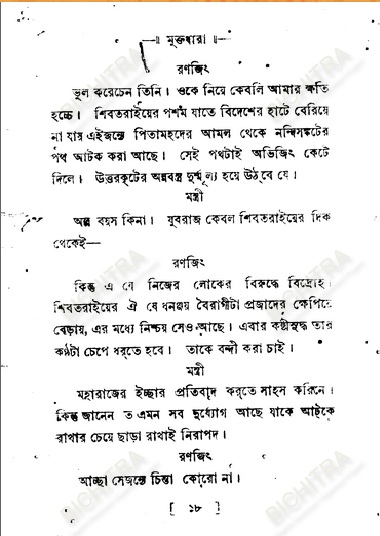 —॥ মুক্তধারা ॥—
রণজিৎ
ভুল করেচেন তিনি। ওকে নিয়ে কেবলি আমার ক্ষতি
হচ্চে। শিবতরাইয়ের পশম যাতে বিদেশের হাটে বেরিয়ে
না যায় এইজন্তে পিতামহদের আমল থেকে নন্দিসঙ্কটের
পথ আটক করা আছে। সেই পথটাই অভিজিৎ কেটে
দিলে। উত্তরকূটের অন্নবস্ত্র দুর্ম্মূল্য হয়ে উঠবে যে।
মন্ত্রী
অল্প বয়স কিনা। যুবরাজ কেবল শিবতরাইয়ের দিক
থেকেই—
রণজিৎ
কিন্তু এ যে নিজের লোকের বিরুদ্ধে বিদ্রোহ।
শিবতরাইয়ের ঐ যে ধনঞ্জয় বৈরাগীটা প্রজাদের ক্ষেপিয়ে
বেড়ায়, এর মধ্যে নিশ্চয় সেও আছে। এবার কণ্ঠীসুদ্ধ তার
কণ্ঠটা চেপে ধর্‌তে হবে। তাকে বন্দী করা চাই।
মন্ত্রী
মহারাজের ইচ্ছার প্রতিবাদ কর্‌তে সাহস করিনে।
কিন্তু জানেন ত এমন সব দুর্য্যোগ আছে যাকে আট্‌কে
রাখার চেয়ে ছাড়া রাখাই নিরাপদ।
রণজিৎ
আচ্ছা সেজন্যে চিন্তা কোরো না।
[ ১৮ ]
BICHITRA